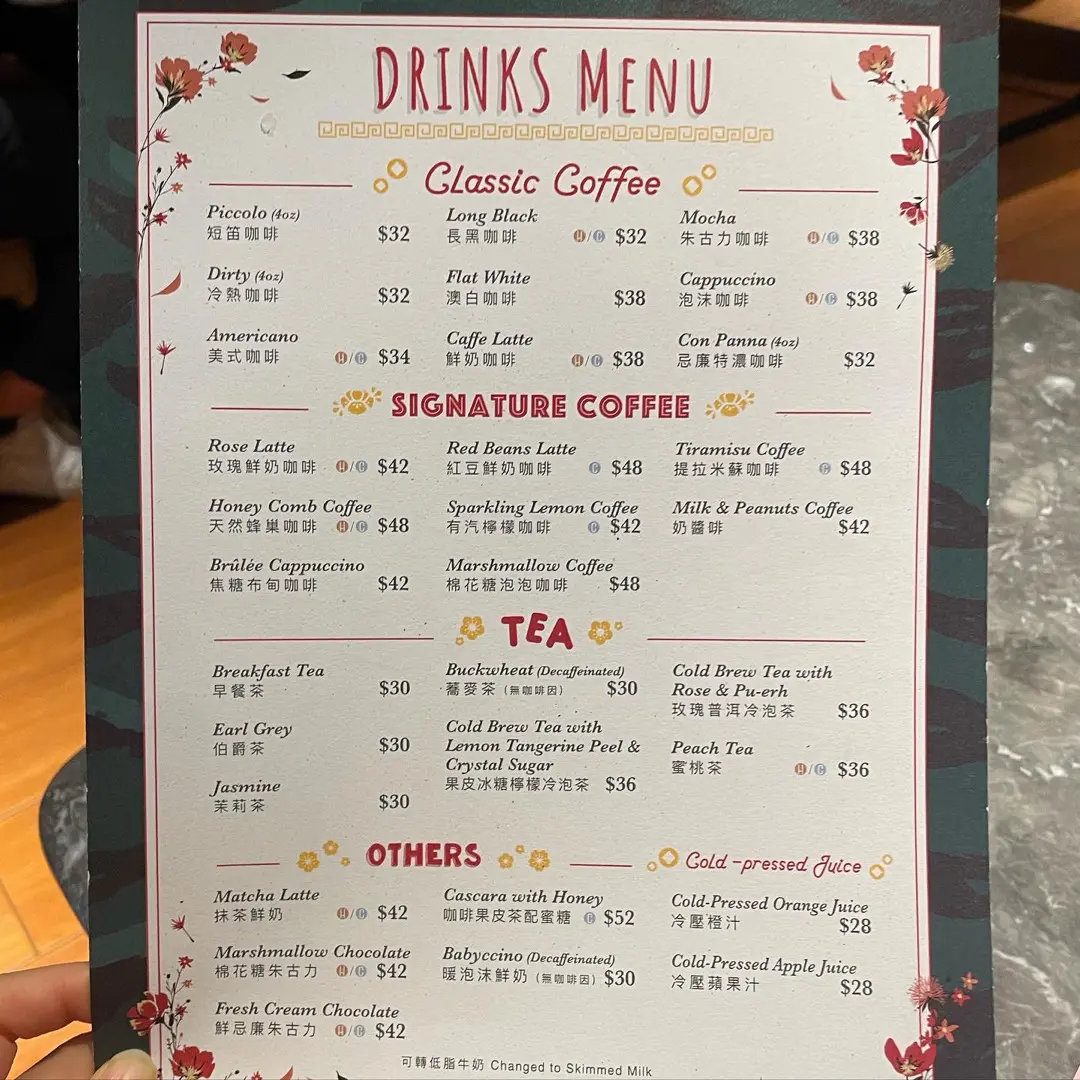 DRINKS MENU
Classic Coffee
Piccolo (4oz)
短笛咖啡 $32
Long Black
長黑咖啡 H/C $32
Mocha
朱古力咖啡 H/C $38
Dirty (4oz)
冷熱咖啡 $32
Flat White
澳白咖啡 $38
Cappuccino
泡沫咖啡 H/C $38
Americano
美式咖啡 H/C $34
Caffe Latte
鮮奶咖啡 H/C $38
Con Panna (4oz)
忌廉特濃咖啡 $32
SIGNATURE COFFEE
Rose Latte
玫瑰鮮奶咖啡 H/C $42
Red Beans Latte
紅豆鮮奶咖啡 C $48
Tiramisu Coffee
提拉米蘇咖啡 C $48
Honey Comb Coffee
天然蜂巢咖啡 H/C $48
Sparkling Lemon Coffee
有汽檸檬咖啡 C $42
Milk & Peanuts Coffee
奶醬啡 $42
Brûlée Cappuccino
焦糖布甸咖啡 $42
Marshmallow Coffee
棉花糖泡泡咖啡 $48
TEA
Breakfast Tea
早餐茶 $30
Earl Grey
伯爵茶 $30
Jasmine
茉莉茶 $30
Buckwheat (Decaffeinated)
蕎麥茶 (無咖啡因) $30
Cold Brew Tea with
Lemon Tangerine Peel &
Crystal Sugar
果皮冰糖檸檬冷泡茶 $36
Cold Brew Tea with
Rose & Pu-erh
玫瑰普洱冷泡茶 $36
Peach Tea
蜜桃茶 H/C $36
OTHERS
Matcha Latte
抹茶鮮奶 H/C $42
Cascara with Honey
咖啡果皮茶配蜜糖 C $52
Marshmallow Chocolate
棉花糖朱古力 H/C $42
Babyccino (Decaffeinated)
暖泡沫鮮奶 (無咖啡因) $30
Fresh Cream Chocolate
鮮忌廉朱古力 H/C $42
Cold-pressed Juice
Cold-Pressed Orange Juice
冷壓橙汁 $28
Cold-Pressed Apple Juice
冷壓蘋果汁 $28
可轉低脂牛奶 Changed to Skimmed Milk